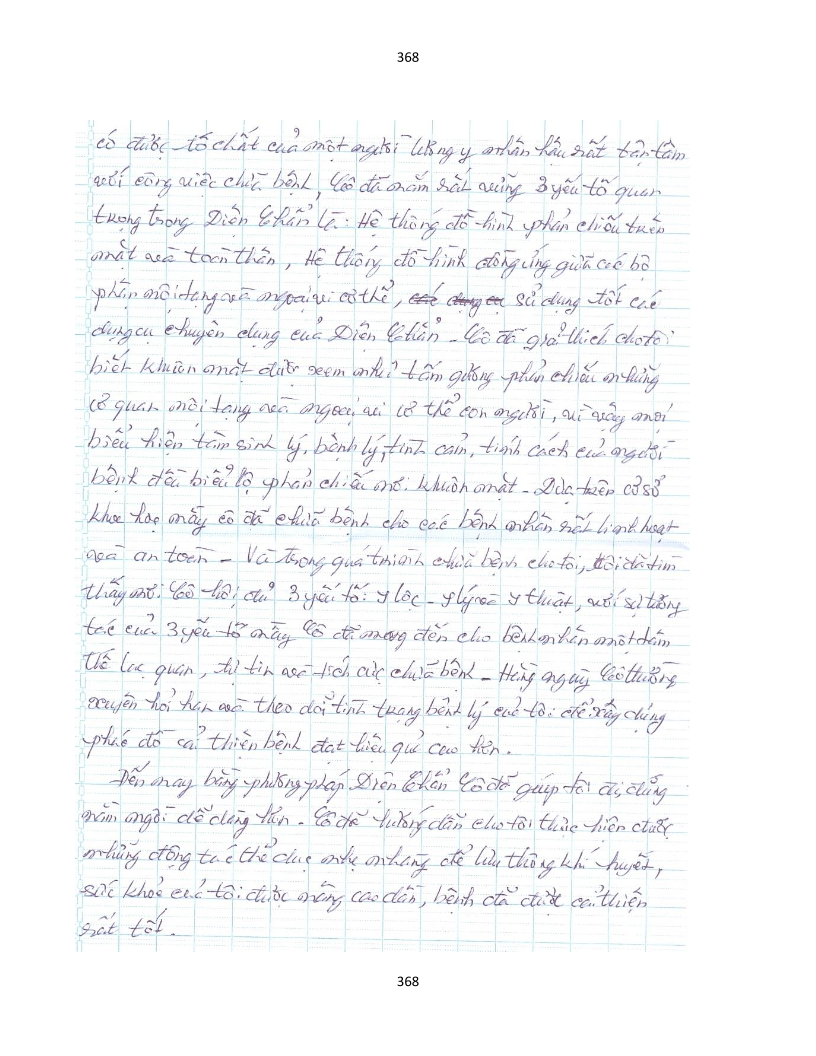 368
có được tố chất của một người lương y nhân hậu rất tận tâm
với công việc chữa bệnh, Cô đã nắm rất vững 3 yếu tố quan
trọng trong Diện Chẩn là: Hệ thống đồ hình phản chiếu trên
mặt và toàn thân, Hệ thống đồ hình đồng ứng giữa các bộ
phận nội tạng và ngoại vi cơ thể, sử dụng tốt các
dụng cụ chuyên dùng của Diện Chẩn - Cô đã giải thích cho tôi
biết khuôn mặt được xem như tấm gương phản chiếu những
cơ quan nội tạng và ngoại vi cơ thể con người, vì vậy mọi
biểu hiện tâm sinh lý, bệnh lý, tình cảm, tính cách của người
bệnh đều biểu lộ phản chiếu nơi khuôn mặt - Dựa trên cơ sở
khoa học nầy cô đã chữa bệnh cho các bệnh nhân rất linh hoạt
và an toàn - Và trong quá trình chữa bệnh cho tôi, tôi đã tìm
thấy nơi Cô hội đủ 3 yếu tố: y lộc - y lý và y thuật, với sự tương
tác của 3 yếu tố nầy Cô đã mang đến cho bệnh nhân một tâm
thế lạc quan, tự tin và tích cực chữa bệnh - Hàng ngày Cô thường
xuyên hỏi han và theo dõi tình trạng bệnh lý của tôi để xây dựng
phác đồ cải thiện bệnh đạt hiệu quả cao hơn.
Đến nay bằng phương pháp Diện Chẩn Cô đã giúp tôi đi, đứng
nằm ngồi dễ dàng hơn - Cô đã hướng dẫn cho tôi thực hiện được
những động tác thể dục nhẹ nhàng để lưu thông khí huyết,
sức khoẻ của tôi được nâng cao dần, bệnh đã được cải thiện
rất tốt.
368